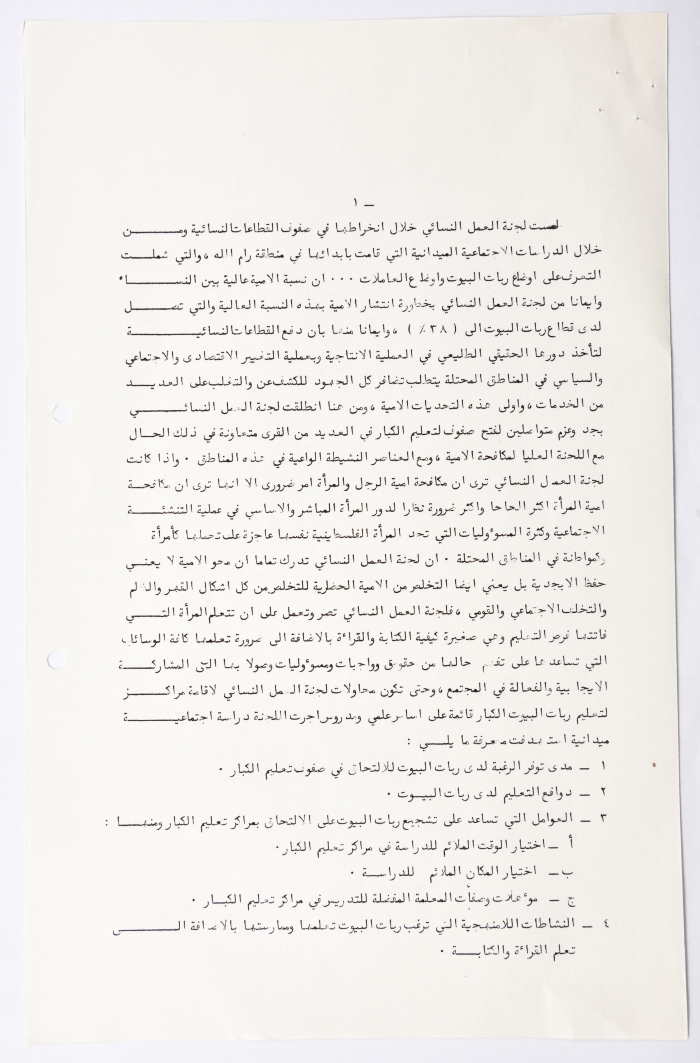 ١ ـ
لمست لجنة العمل النسائي خلال انخراطها في صفوف القطاعات النسائية ومـــــن
خلال الدراسات الاجتماعية الميدانية التي قامت بابدائها في منطقة رام الله ، والتي شملـــت
التعرف على اوضاع ربات البيوت واوضاع العاملات ٠٠٠ ان نسبة الامية عالية بين النســـاء
وايمانا من لجنة العمل النسائي بخطورة انتشار الامية بهذه النسبة العالية والتي تصـــل
لدى قطاع ربات البيوت الى ( ٣٨٪ ) ، وايمانا منها بان دفع القطاعات النسائيـــــة
لتأخذ دورها الحقيقي الطليعي في العملية الانتاجية وبعملية التغيير الاقتصادى والاجتماعي
والسياسي في المناطق المحتلة يتطلب تضافر كل الجهود للكشف عن والتغلب على العديـــد
من الخدمات ، واولى هذه التحديات الامية ، ومن هنا انطلقت لجنة العمل النسائـــــي
بجد وعزم متواصلين لفتح صفوف لتعليم الكبار في العديد من القرى متعاونة في ذلك الحـال
مع اللجنة العليا لمكافحة الامية ، ومع العناصر النشيطة الواعية في هذه المناطق ٠ واذا كانت
لجنة العمل النسائي ترى ان مكافحة امية الرجل والمرأة امر ضرورى الا انها ترى ان مكافحـة
امية المرأة اكثر الحاحا واكثر ضرورة نظارا لدور المرأة المباشر والاساسي في عملية التنشئـــة
الاجتماعية وكثرة المسؤوليات التي تجد المرأة الفلسطينية نفسها عاجزة على تحملها كأمرأة
وكمواطنة في المناطق المحتلة ٠ ان لجنة العمل النسائي تدرك تماما ان محو الامية لا يعنـي
حفظ الابجدية بل يعني ايضا التخلص من الامية الحضارية للتخلص من كل اشكال القهر والظلم
والتخلف الاجتماعي والقومي ، فلجنة العمل النسائي تصر وتعمل على ان تتعلم المرأة التــــي
فاتتها فرص التعليم وهي صغيرة كيفية الكتابة والقراءة بالاضافة الى ضرورة تعلمها كافة الوسائل
التي تساعدها على تفهم حالها من حقوق وواجبات ومسؤوليات وصولا بها الى المشاركـــة
الايجابية والفعالة في المجتمع ، وحتى تكون محاولات لجنة العمل النسائي لاقامة مراكـــــز
لتعليم ربات البيوت الكبار قائمة على اساس علمي ومدروس اجرت اللجنة دراسة اجتماعيــــة
ميدانية استهدفت معرفة ما يلـــي :
١ ـ مدى توفر الرغبة لدى ربات البيوت للالتحاق في صفوف تعليم الكبار ٠
٢ ـ دوافع التعليم لدى ربات البيـــوت ٠
٣ ـ العوامل التي تساعد على تشجيع ربات البيوت على الالتحاق بمراكز تعليم الكبار ومنهـــا :
أ ـ اختيار الوقت الملائم للدراسة في مراكز تعليم الكبار٠
ب ـ اختيار المكان الملائم للدراســـة ٠
ج ـ مؤهلات وصفات المعلمة المفضلة للتدريس في مراكز تعليم الكبـــار ٠
٤ ـ النشاطات اللامنهجية التي ترغب ربات البيوت تعلمها وممارستها بالاضافة الـــــى
تعلم القراءة والكتابـــة ٠